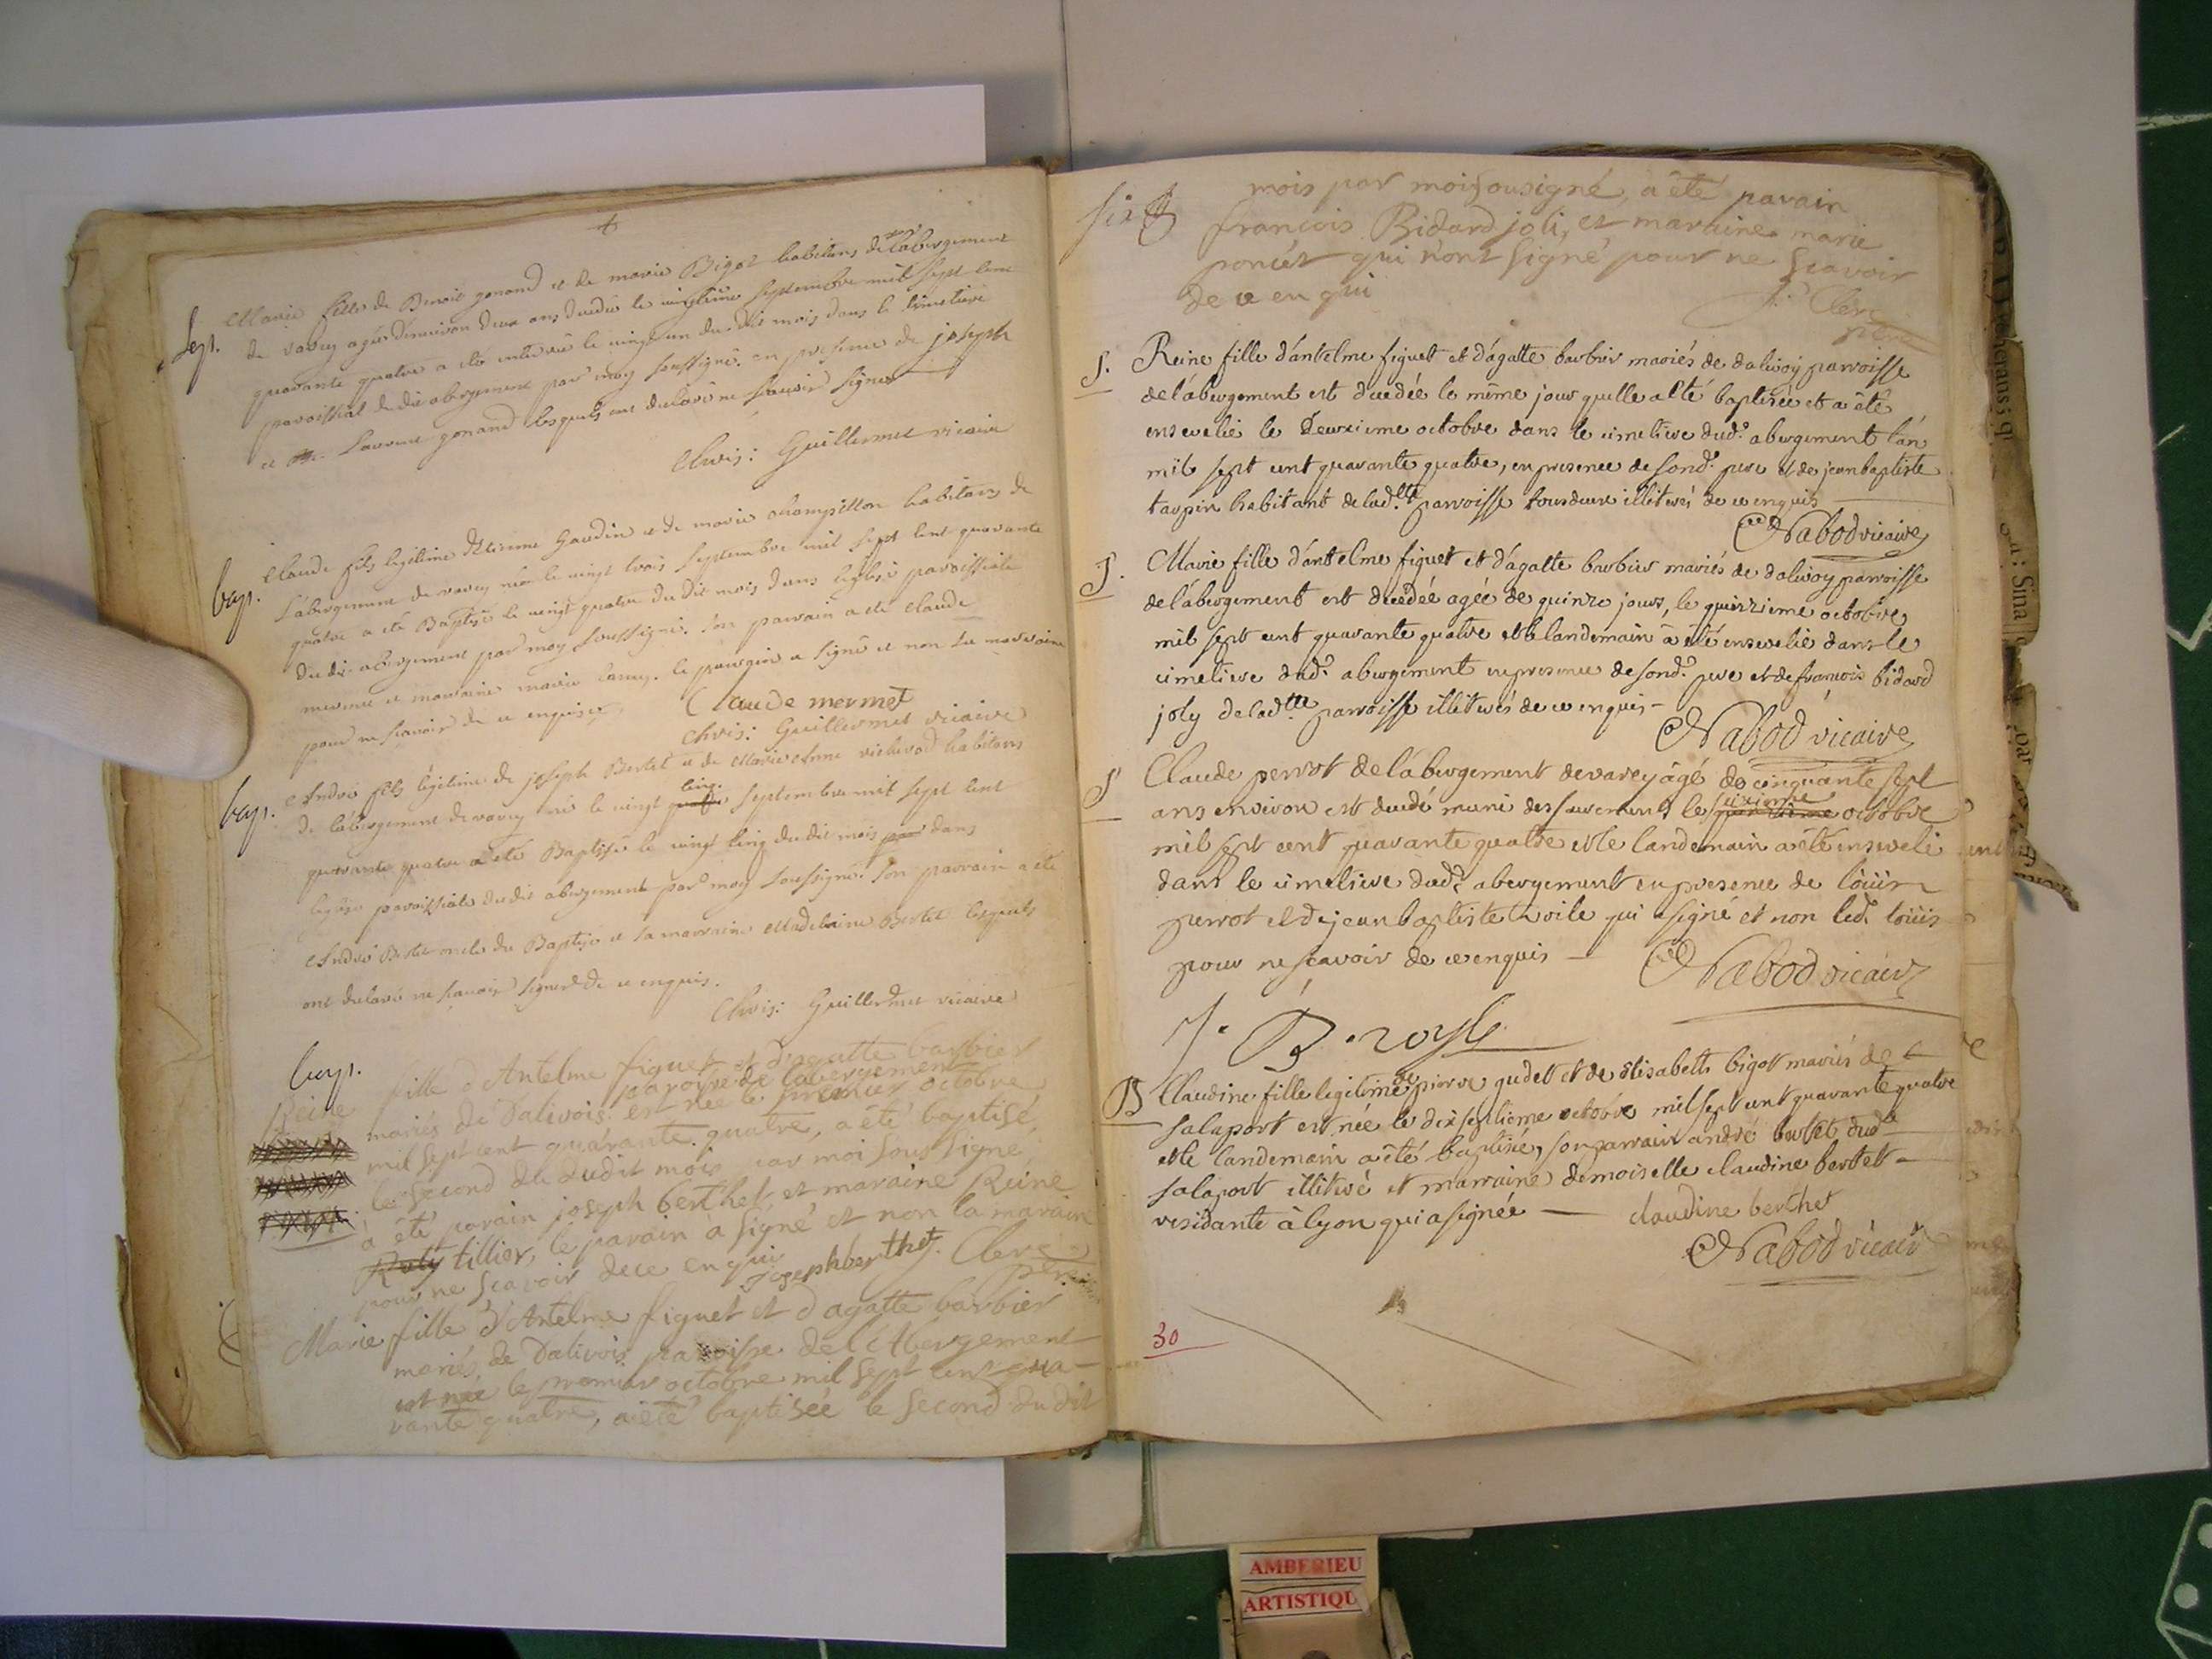 Sep. Marie fille de Benoit gonand et de marie Bigot habitans de l'abergement
de varey agée d'environ deux ans decedée le vingtieme septembre mil sept cent
quarante quatre a eté enterrée le vingt un du dit mois dans le cimetiere
paroissial du dit abergement par moy soussigné. en presence de joseph
et Laurent gonand lesquels ont declaré ne scavoir signer
Chris: Guillermet vicaire
bap. Claude fils legitime d'Etienne Gaudin et de marie champillon habitans de
L'abergement de varey né le vingt trois septembre mil sept cent quarante
quatre a eté Baptisé le vingt quatre du dit mois dans l'eglise paroissiale
du dit abergement par moy soussigné. son parrain a eté claude
mermet et marraine marie. le parrain a signé et non la marraine
pour ne scavoir de ce enquise
Claude mermet
Chris: Guillermet vicaire
bap. André fils légitime de joseph Bertet et de Marie Anne habitans
de l'abergement de varey né le vingt cinq septembre mil sept cent
quarante quatre a eté Baptisé le vingt cinq du dit mois dans
l'eglise paroissiale du dit abergement par moy soussigné. son parrain a eté
André Bertet oncle du Baptisé et sa marraine Madelaine Bertet lesquels
ont declaré ne scavoir signer de ce enquis.
Chris: Guillermet vicaire
bap.
Reine fille d'Antelme figuet et d'agatte barbier
mariés de Dalivois paroisse de labergement est née le premier octobre
mil sept cent quarante quatre, a êté baptisé,
le second du dudit mois par moi sous signé
à êté parain joseph berthet, et maraine Reine
tillier, le parain à signé et non la marain
pour ne scavoir de ce enqui
Josephberthet. Clerc
Marie fille d'Antelme figuet et d'agatte barbier
mariés de Dalivois paroisse de l'Abergement
est née le premier octobre mil sept cent qua-
rante quatre, a êté baptisée le second du dit
mois par moi sousigné, a êté parain
françois Bidard joli, et maraine marie
poncét qui n'ont signé pour ne scavoir
de ce en qui
Clerc
S. Reine fille d'antelme figuet et d'agatte barbier mariés de dalivoy parroisse
de l'abergement est decedée le même jour quelle a êté baptisée et a êté
ensevelie le deuxieme octobre dans le cimetiere dud. abergement l'an
mil sept cent quarante quatre, en presence de sond. pere et de jean baptiste
tarpin habitant de lad.tte parroisse tous deux illiterés de ce enquis
Nabod vicaire
S. Marie fille d'antelme figuet et d'agatte barbier mariés de dalivoy parroisse
de l'abergement est decedée agée de quinze jours, le quinzieme octobre
mil sept cent quarante quatre et le landemain a êté ensevelie dans le
cimetiere dud. abergement en presence de sond. pere et de françois bidard
joly de lad.tte parroisse illiterés de ce enquis -
Nabod vicaire
S Claude perrot de l'abergement de varey âgé de cinquante sept
ans environ est decedé muni des sacrements le seizieme octobre
mil sept cent quarante quatre et le landemain a êté enseveli
dans le cimetiere dud. abergement en presence de loüis
perrot et de jean baptiste qui a signé et non led. loüis
pour ne scavoir de ce enquis -
Nabod vicaire
B Claudine fille legitime de pierre gudet et de elisabeth bigot mariés de
salaport est née le dix septieme octobre mil sept cent quarante quatre
et le landemain a êté baptisée, son parrain andré bertet dud.
salaport illiteré et marraine demoiselle claudine bertet -
residante à lyon qui a signée - claudine berthet
Nabod vicaire
30
AMBERIEU
ARTISTIQU